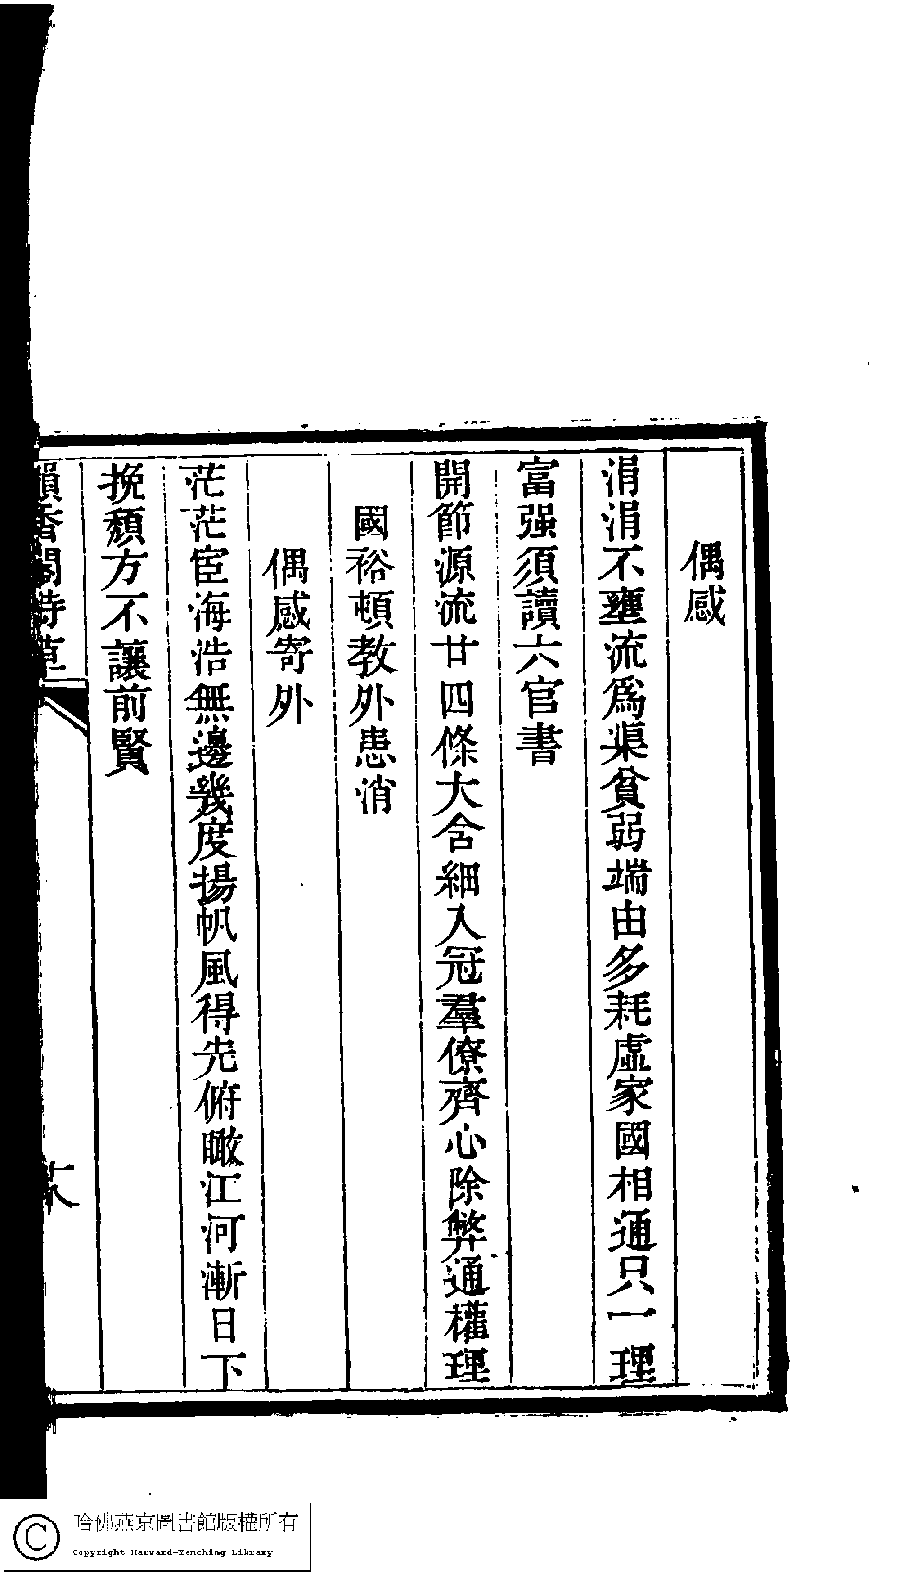 偶感
涓涓不壅流爲渠貧弱端由多耗虛家國相通只一理
富强須讀六官書
開節源流廿四條大含細入冠羣僚齊心除弊通權理
國裕頓教外患消
偶感寄外
茫茫宦海浩無邊幾度揚帆風得先俯瞰江河漸日下
挽頹方不讓前賢
韻香閣詩草
哈佛燕京圖書館版權所有
Copyright Harvard-Yenching Library